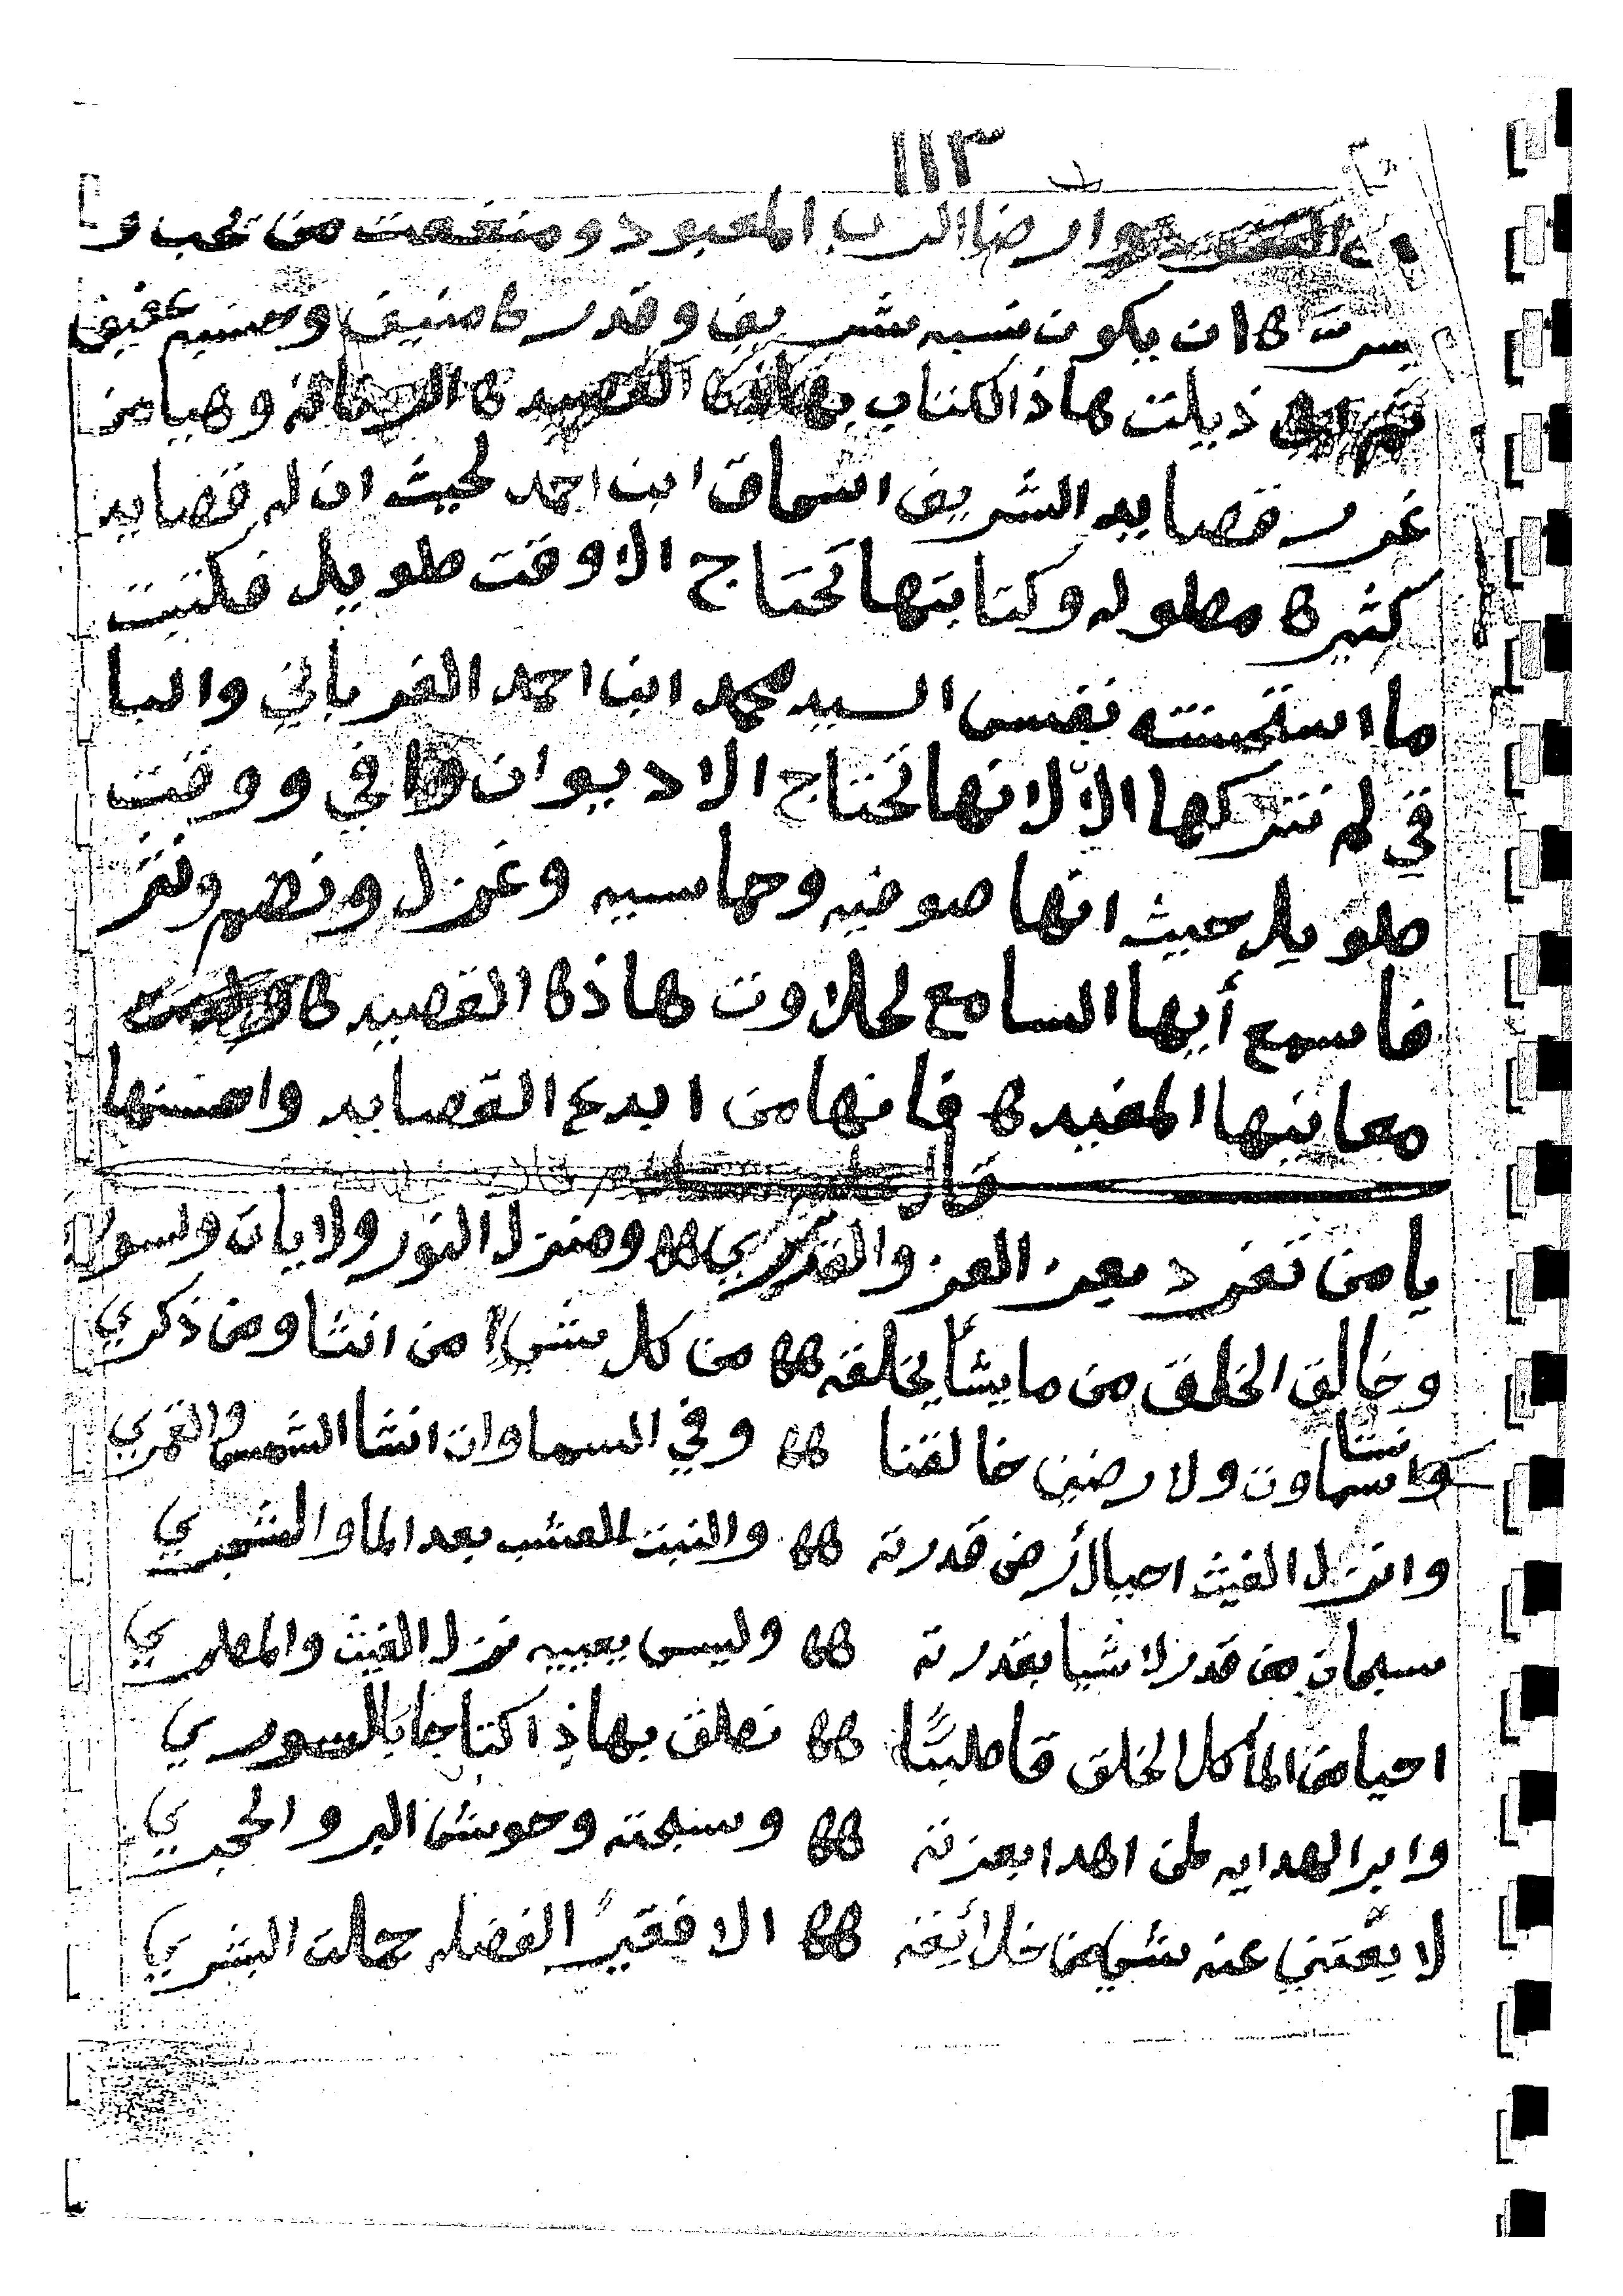 ١١٣
وارضا الرب المعبود ومنفعت من تحب و
يسرت ه ان يكون نسبه شريف وقدره منيف وحسبه عفيف
ثم اني ذيلت هاذا الكتاب بهاذه القصيده وهيا من
غرر قصايد الشريف اسماق ابن احمد لحيث ان له قصايد
كثيره مطوله وكتابتها تحتاج الا وقت طويل فكتبت
ما استحسنته نفس السيد محمد ابن احمد الغرباني والبا
قي لم نتركها الا لانها تحتاج الا ديوان وافي ووقت
طويل حيث انها صوفيه وحماسيه وغزل ونضم ونثر
فاسمع أيها السامع لحلاوت هاذه القصيده
معانيها المفيده فانها من ابدع القصايد واحسنها
قال
يا من تفرد بعز العز والقدري هه ومنزل النور ولايات ولسور
وخالق الخلق من ما يشأ يخلقه هه من كل شي من انثا ومن ذكري
واسماوت ولارضين خالقنا هه وفي السماوات انشا الشمس والقمري
وانزل الغيث احيا لأرض قدرته هه والنبت للعشب بعد الما والشجري
سبحان من قدر لاشيا بقدرته هه وليس يعييه نزل الغيث والمطري
احيا من الما كل الخلق قاطبتًا هه نطلق بهاذا كتا جا بالسوري
وابر الهدايه لمن اهدا بعزته هه وسبحته وحوش البر والحجري
لا يغتني عنه شي من خلائقه هه الا فقيرً الفضله جملت البشري